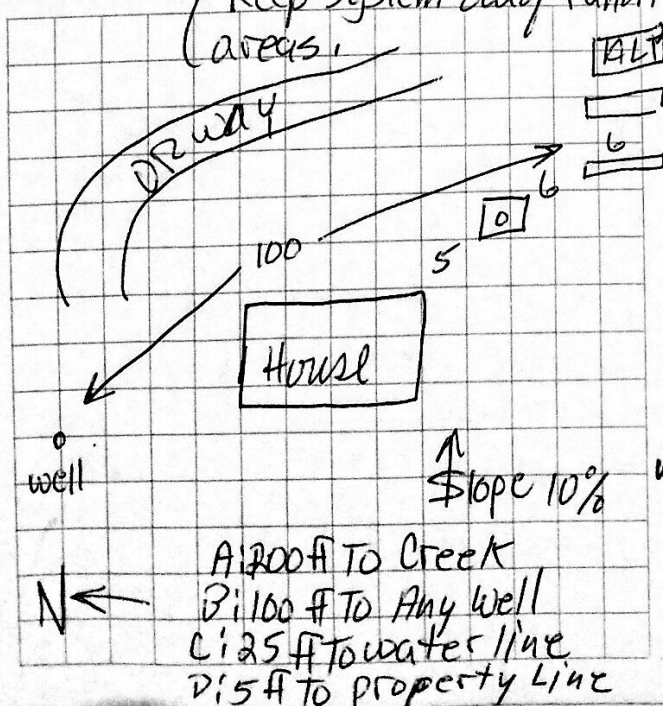 Keep System
areas.
ALT
DR way
6
6
O
100
5
House
well
Slope 10%
N
A: 200 ft To Creek
B: 100 ft To Any Well
C: 25 ft To water line
D: 5 ft To property Line